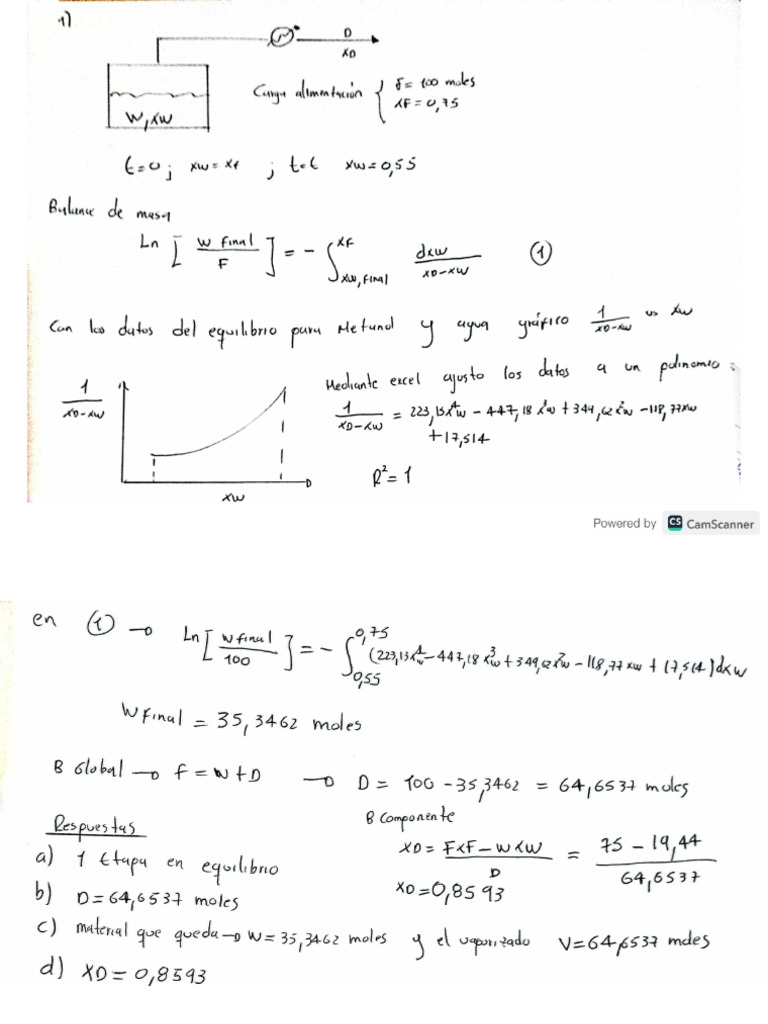 1)
D
XD
W, xw
Carga alimentación { F = 100 moles
xF = 0,75
t=0 ; xw = xF ; t=t xw = 0,55
Balance de masa
Ln [ W final / F ] = - ∫ xw,final ^ xF dxw / (xD-xw) (1)
Con los datos del equilibrio para Metanol y agua gráfico 1 / (xD-xw) vs xw
Mediante excel ajusto los datos a un polinomio :
1 / (xD-xw)
1 / (xD-xw) = 223,13x⁴w - 447,18 x³w + 349,62 x²w - 118,77xw
+17,514
R² = 1
xw
Powered by CS CamScanner
en (1) → Ln [ W final / 100 ] = - ∫ 0,55 ^ 0,75 (223,13x⁴w - 447,18 x³w + 349,62 x²w - 118,77 xw + 17,514) dxw
W Final = 35,3462 moles
B Global → F = W + D → D = 100 - 35,3462 = 64,6537 moles
B Componente
Respuestas
XD = (F xF - W xW) / D = (75 - 19,44) / 64,6537
a) 1 Etapa en equilibrio
XD = 0,8593
b) D = 64,6537 moles
c) material que queda → W = 35,3462 moles y el vaporizado V = 64,6537 moles
d) XD = 0,8593